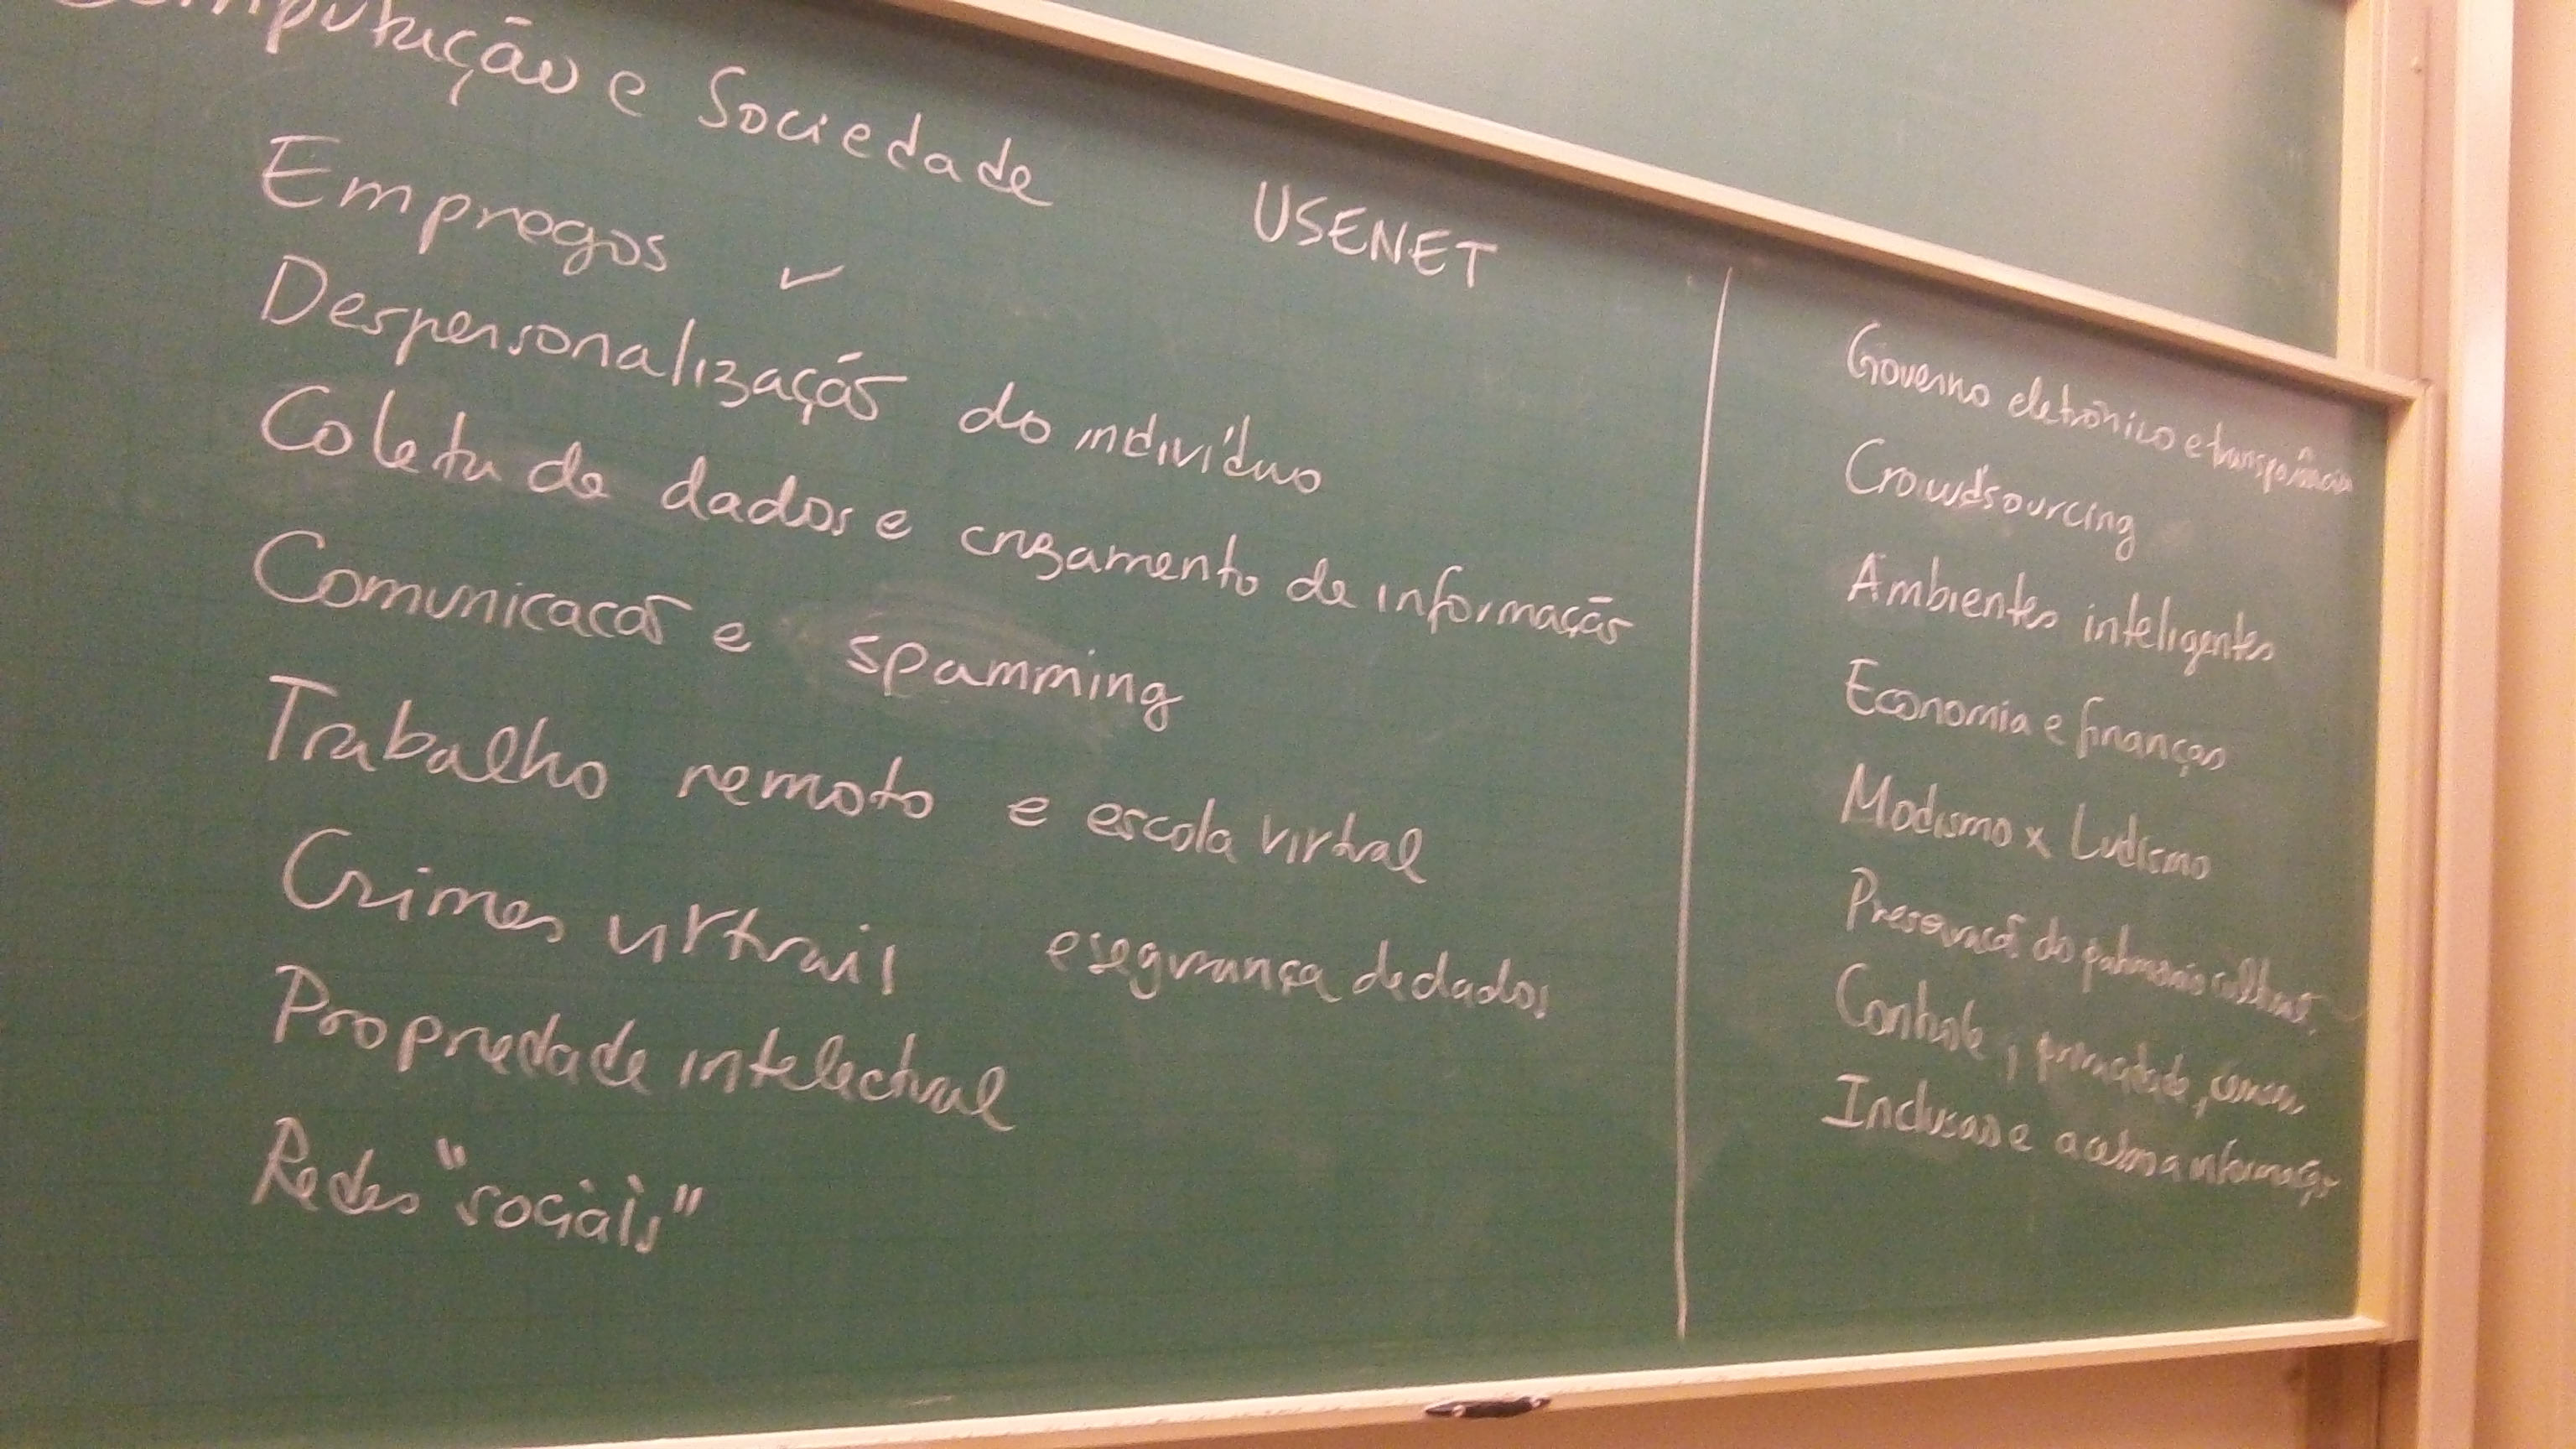 Computação e Sociedade
USENET
Empregos ✓
Despersonalização do indivíduo
Coleta de dados e cruzamento de informação
Comunicacão e spamming
Trabalho remoto e escola virtual
Crimes virtuais e segurança de dados
Propriedade intelectual
Redes "sociais"
Governo eletrônico e transparência
Crowdsourcing
Ambientes inteligentes
Economia e finanças
Modismo x Ludismo
Preservacão do patrimonio cultural
Controle, privacidade,
Inclusão e acesso a informação